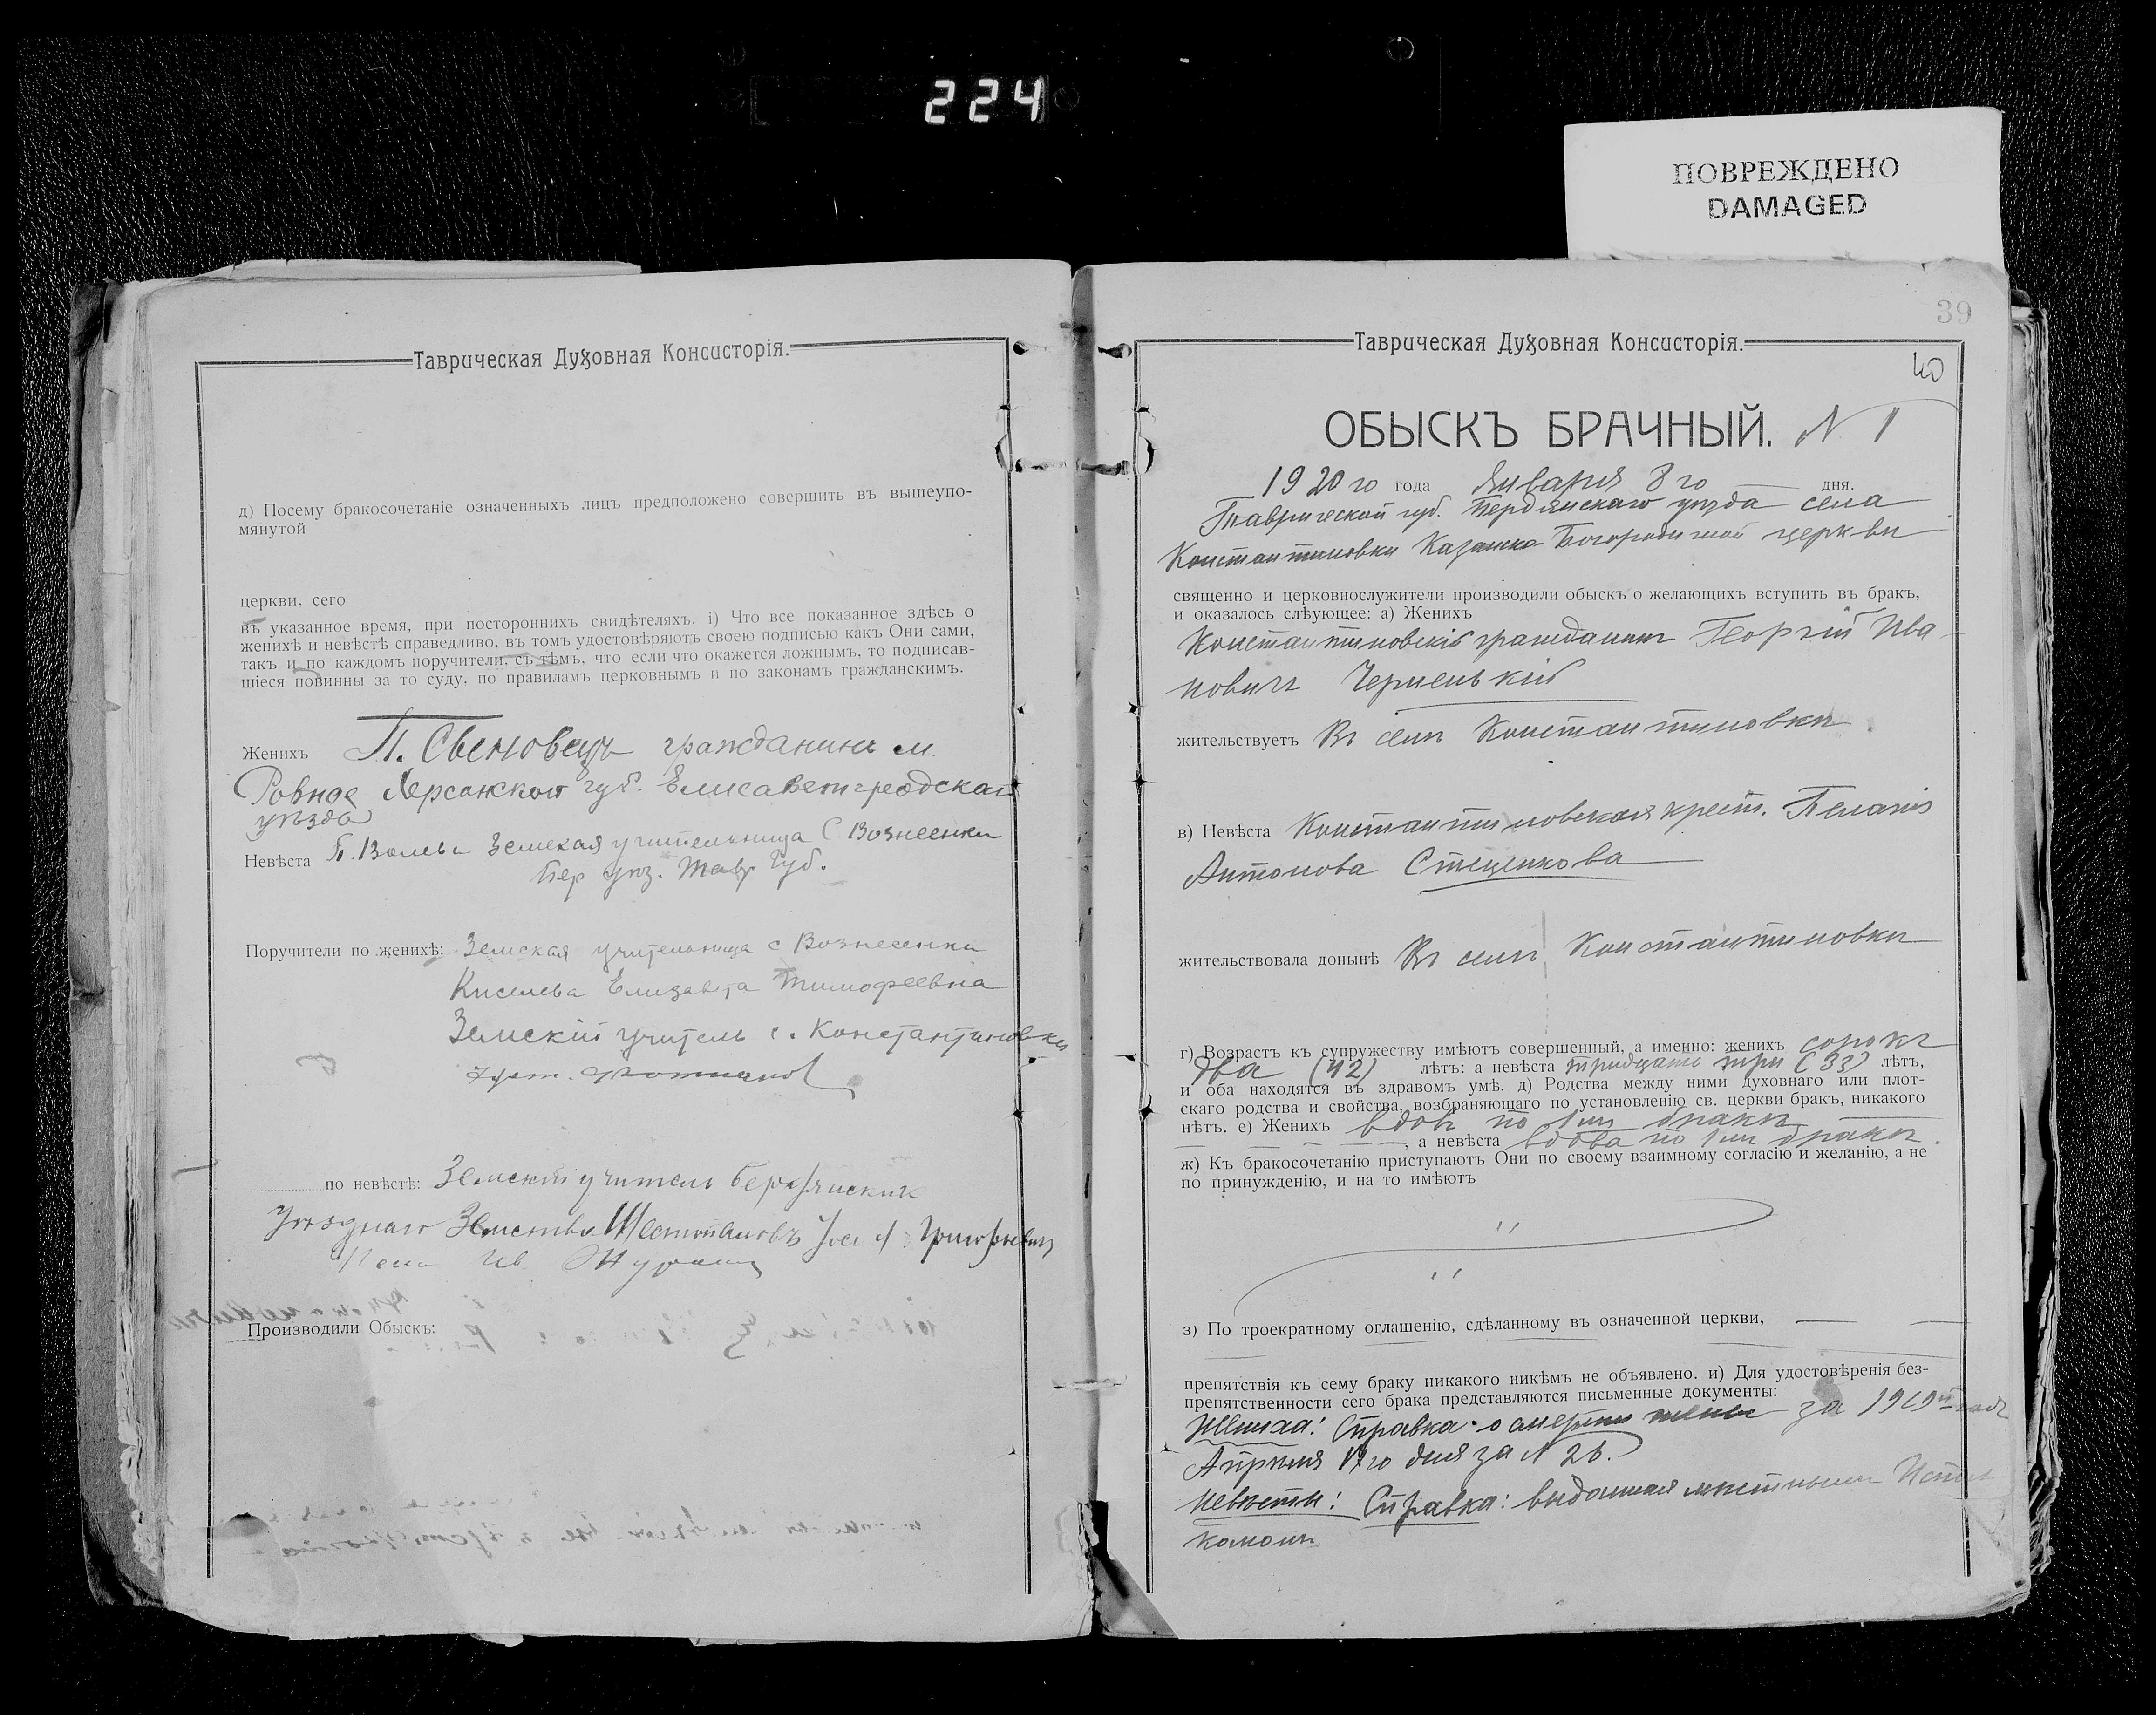 224
ПОВРЕЖДЕНО
DAMAGED
Таврическая Духовная Консисторія.
д) Посему бракосочетаніе означенныхъ лицъ предположено совершить въ вышеупо-
мянутой
церкви, сего
въ указанное время, при постороннихъ свидѣтеляхъ. і) Что все показанное здѣсь о
женихѣ и невѣстѣ справедливо, въ томъ удостовѣряютъ своею подписью какъ Они сами,
такъ и по каждомъ поручители, съ тѣмъ, что если что окажется ложнымъ, то подписав-
шіеся повинны за то суду, по правиламъ церковнымъ и по законамъ гражданскимъ.
Женихъ П. гражданинъ м.
Ровное Херсонской губ. Елисаветградскаго
уѣзда
Невѣста Земская учительница С Вознесенки
Бер уѣз. Тавр Губ.
Поручители по женихѣ: Земская учительница с Вознесенки
Киселева Елизавета Тимофеевна
Земскій учитель с. Константиновки
по невѣстѣ: Земскій учитель
Уѣзднаго Земства Шестопаловъ
Ив.
Производили Обыскъ:
39
Таврическая Духовная Консисторія.
40
ОБЫСКЪ БРАЧНЫЙ. N 1
1920 го года Января 8 го дня.
Таврической губ. Бердянскаго уѣзда села
Константиновки Казанско Богородичной церкви
священно и церковнослужители производили обыскъ о желающихъ вступить въ бракъ,
и оказалось слѣующее: а) Женихъ
Константиновскій гражданинъ Георгій Ива
новичъ Черненькій
жительствуетъ Въ селѣ Константиновкѣ
в) Невѣста Константиновская крест. Пелагія
Антонова Стеценкова
жительствовала донынѣ Въ селѣ Константиновкѣ
г) Возрастъ къ супружеству имѣютъ совершенный, а именно: женихъ сорокъ
два (42) лѣтъ: а невѣста тридцать три (33) лѣтъ,
и оба находятся въ здравомъ умѣ. д) Родства между ними духовнаго или плот-
скаго родства и свойства, возбраняющаго по установленію св. церкви бракъ, никакого
нѣтъ. е) Женихъ вдовъ по 1мъ бракѣ
, а невѣста вдова по 1мъ бракѣ.
ж) Къ бракосочетанію приступаютъ Они по своему взаимному согласію и желанію, а не
по принужденію, и на то имѣютъ
з) По троекратному оглашенію, сдѣланному въ означенной церкви,
препятствія къ сему браку никакого никѣмъ не объявлено. и) Для удостовѣренія без-
препятственности сего брака представляются письменные документы:
Жениха: Справка о смерти жены за 1919й годъ
Апрѣля го дня за N 26.
Невѣсты: Справка: выданная мѣстнымъ Испол
комомъ